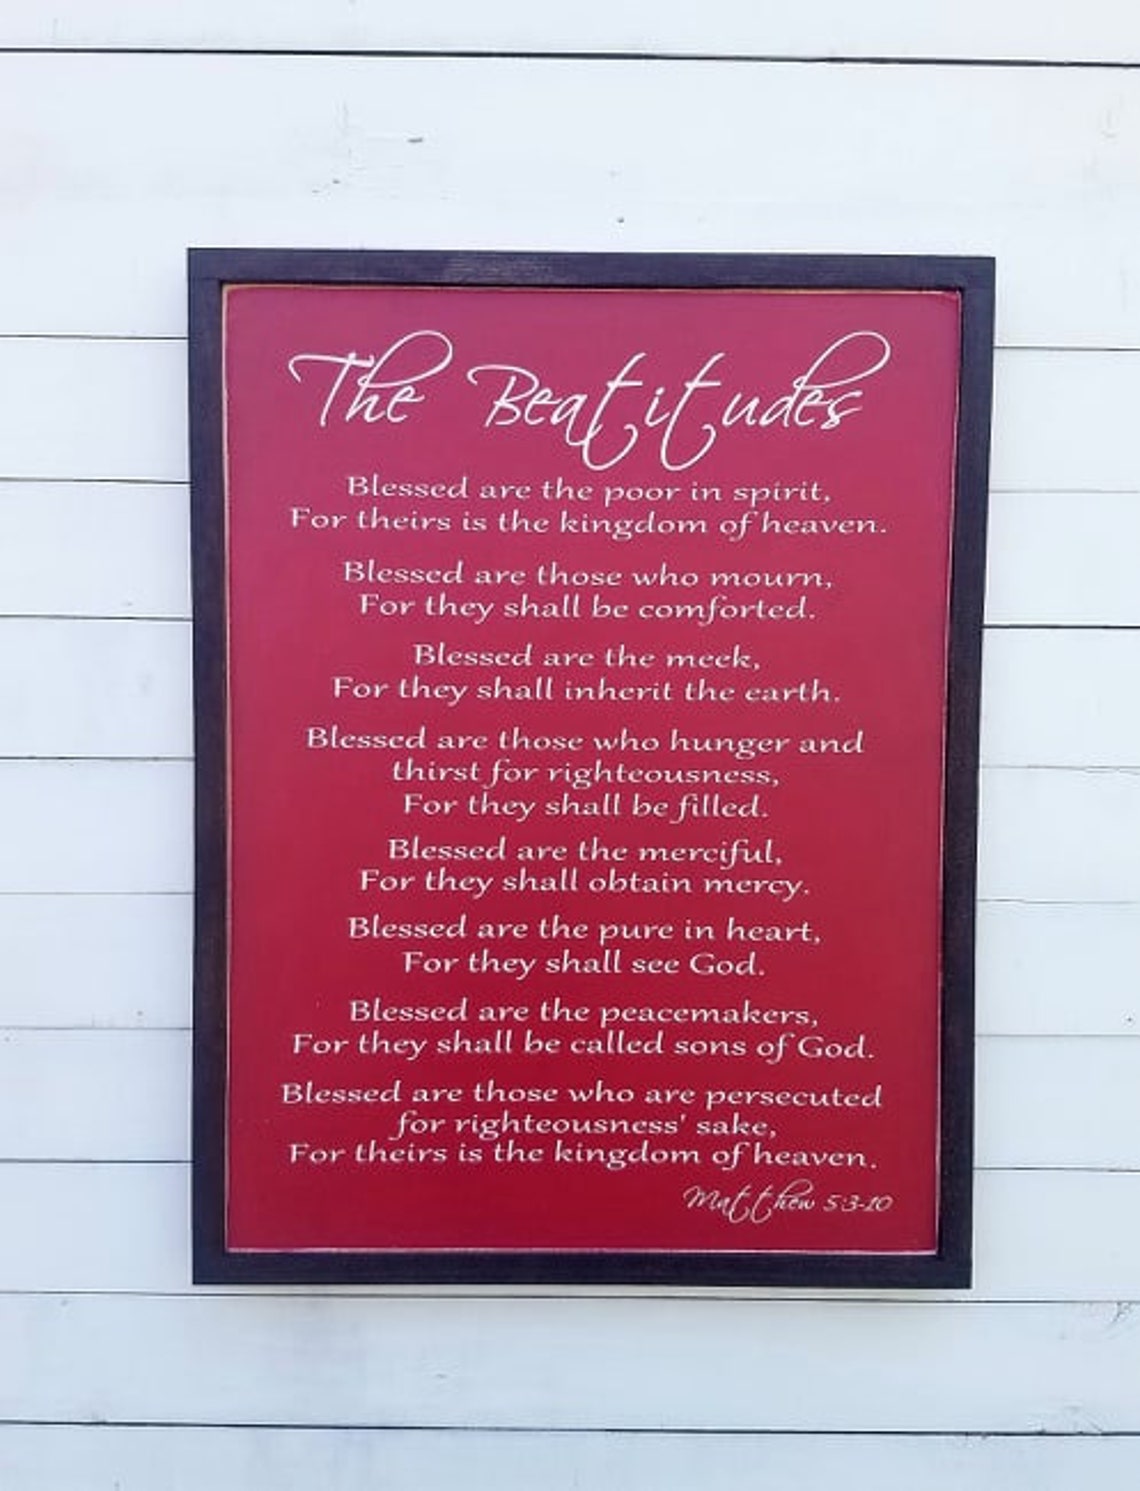 The Beatitudes
Blessed are the poor in spirit,
For theirs is the kingdom of heaven.
Blessed are those who mourn,
For they shall be comforted.
Blessed are the meek,
For they shall inherit the earth.
Blessed are those who hunger and
thirst for righteousness,
For they shall be filled.
Blessed are the merciful,
For they shall obtain mercy.
Blessed are the pure in heart,
For they shall see God.
Blessed are the peacemakers,
For they shall be called sons of God.
Blessed are those who are persecuted
for righteousness' sake,
For theirs is the kingdom of heaven.
Matthew 5:3-10